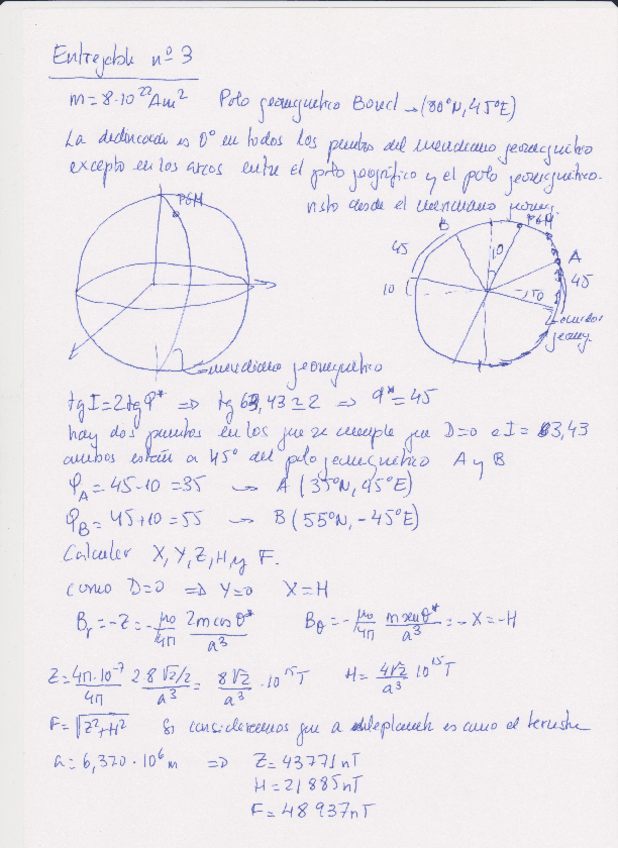 Entregable nº 3
m = 8·10²² Am²   Polo geomagnético Boreal → (80ºN, 45ºE)
La declinación es 0º en todos los puntos del meridiano geomagnético
excepto en los arcos entre el polo geográfico y el polo geomagnético.
visto desde el meridiano geomag.
PGM
meridiano geomagnético
B
PGM
A
45
10
10
45
10
ecuador
geomg.
tg I = 2 tg φ* ⇒ tg 63,43 ≃ 2 ⇒ φ* = 45
hay dos puntos en los que se cumple que D=0 e I = 63,43
ambos están a 45º del polo geomagnético A y B
φA = 45-10 = 35 → A (35ºN, 45ºE)
φB = 45+10 = 55 → B (55ºN, -45ºE)
Calcular X, Y, Z, H, y F.
como D=0 ⇒ Y=0   X=H
Br = -Z = -μ0/4π 2m cos θ*/a³   Bθ = -μ0/4π m sen θ*/a³ = -X = -H
Z = 4π·10⁻⁷/4π 2·8 √2/2/a³ = 8√2/a³ ·10¹⁵ T   H = 4√2/a³ 10¹⁵ T
F = √Z²+H²   Si consideramos que a planeta es como el terrestre
a = 6,370·10⁶ m ⇒ Z = 43771 nT
H = 21885 nT
F = 48937 nT